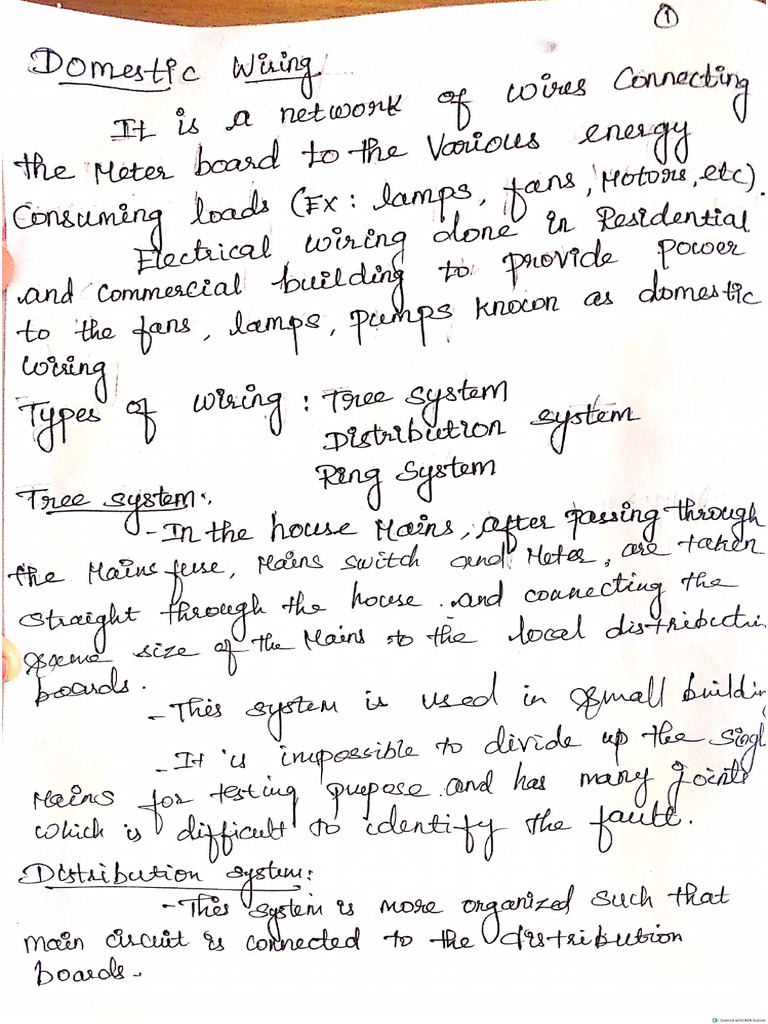 1
Domestic Wiring
It is a network of wires Connecting
the Meter board to the Various energy
Consuming loads (Ex: lamps, fans, Motors, etc).
Electrical wiring done in Residential
and commercial building to provide power
to the fans, lamps, pumps known as domestic
wiring
Types of wiring : Tree system
Distribution system
Ring System
Tree system:
- In the house Mains, after passing through
the Mains fuse, Mains switch and Meter, are taken
straight through the house and connecting the
same size of the Mains to the local distributi
boards.
- This system is used in small buildin
- It is impossible to divide up the singl
Mains for testing purpose and has many joints
which is difficult to identify the fault.
Distribution system:
- This system is more organized such that
main circuit is connected to the distribution
boards.
Scanned with OKEN Scanner